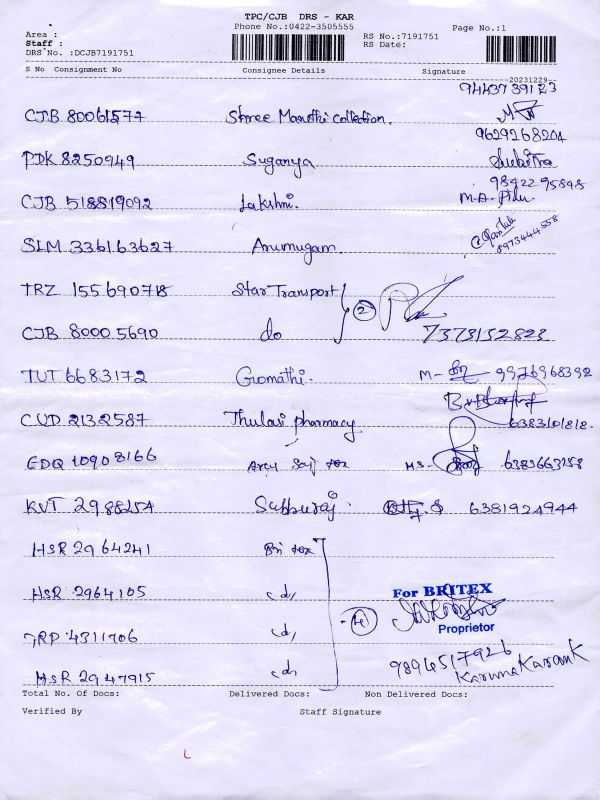 TPC/CJB DRS - KAR
Phone No.:0422-3505555
Page No.:1
Area :
Staff :
DRS No. :DCJB7191751
RS No.:7191751
RS Date:
S No Consignment No Consignee Details Signature
20231229
9443739123
CJB 80061577 Shree Maruthi Collection.
9629268204
PDK 8250949 Suganya
9842295848
CJB 518819092 Lakshmi.
SLM 336163627 Arumugam. 8973444558
TRZ 155690718 Star Transport
2
CJB 80005690 do 7373152823
TUT 6683172 Gomathi. 9976968392
CUD 2132587 Thulasi pharmacy 6383101818.
EDQ 10908166 6383663258
KVT 2988254 Subburaj. 6381924944
HSR 2964241 Bri tex
HSR 2964105 cd,
For BRITEX
4
TRP 4311706 cd,
Proprietor
9894517926
HSR 2947915 cd, Karuna Karan K
Total No. Of Docs: Delivered Docs: Non Delivered Docs:
Verified By Staff Signature